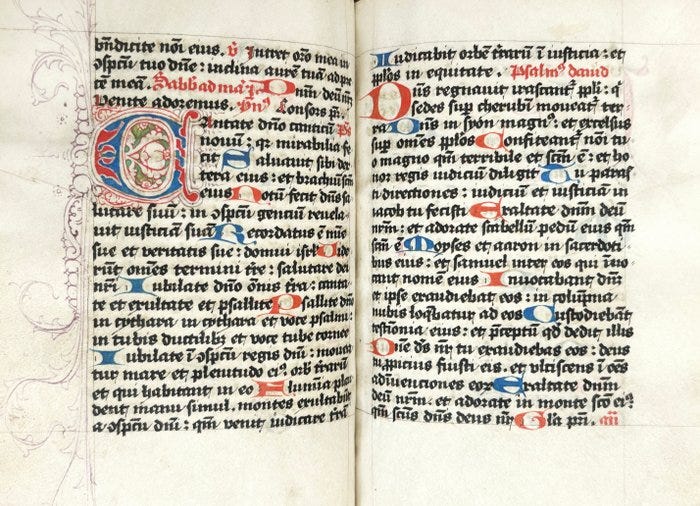 bn̄dicite nōi eius. ℣ Intret oro mea in
ɔspctu tuo dn̄e: inclina aurē tuā ad pre
cē meā. Sabb ad maī. Dnm̄ deū nr̄m
Venite adoremus. ymꝰ Consors pr̄.
Cantate dn̄o canticū Ps
novū: qr mirabilia fe
cit Saluauit sibi dex
tera eius: et brachiū scm̄
eius Notū fecit dn̄s sa
lutare suū: in ɔspctu genciū reuela
uit iusticiā suā Recordatus ē mīe
sue et veritatis sue: domui isrl Vide
rūt om̄es termini tr̄e: salutare dei
nr̄i Iubilate dn̄o om̄is tr̄a: canta
te et exultate et psallite Psallite dn̄o
in cythara in cythara et voce psalmi:
in tubis ductilibꝫ et voce tube cornee
Iubilate ī ɔspctu regis dn̄i: mouea
tur mare et plenitudo eiꝰ. orb trarū
et qui habitant in eo Flumīa plau
dent manu simul. montes exultabūt
a ɔspctu dn̄i: qm̄ venit iudicare tr̄ā
Iudicabit orbē tr̄arū ī iusticia: et
pplos in equitate. Psalmꝰ david
Dn̄s regnauit irascant ppli: q̄
sedes sup cherubī moueat ter
ra Dn̄s in syon magnꝰ: et excelsus
sup om̄es pplos Confiteant nōi tu
o magno qm̄ terribile et scm̄ ē: et ho
nor regis iudiciū diligit Tu parasti
directiones: iudiciū et iusticiā in
iacob tu fecisti Exaltate dnm̄ deū
nrm̄: et adorate scabellū pedū eiꝰ qm̄
scm̄ ē Moyses et aaron in sacerdoti
bus eius: et samuel inter eos qui īuo
cant nomē eius Inuocabant dnm̄
et ipse exaudiebat eos: in columpna
nubis loqbatur ad eos Custodiebant
testīonia eius: et p̄ceptū qd dedit illis
Dn̄e ds̄ nr̄ tu exaudiebas eos: deus
tu ppicius fuisti eis. et vlciscens ī oēs
adīuenciones eorꝫ Exaltate dnm̄
deū nrm̄. et adorate in monte scō eiꝰ
qm̄ scūs dn̄s deus nr̄ Gla pri.